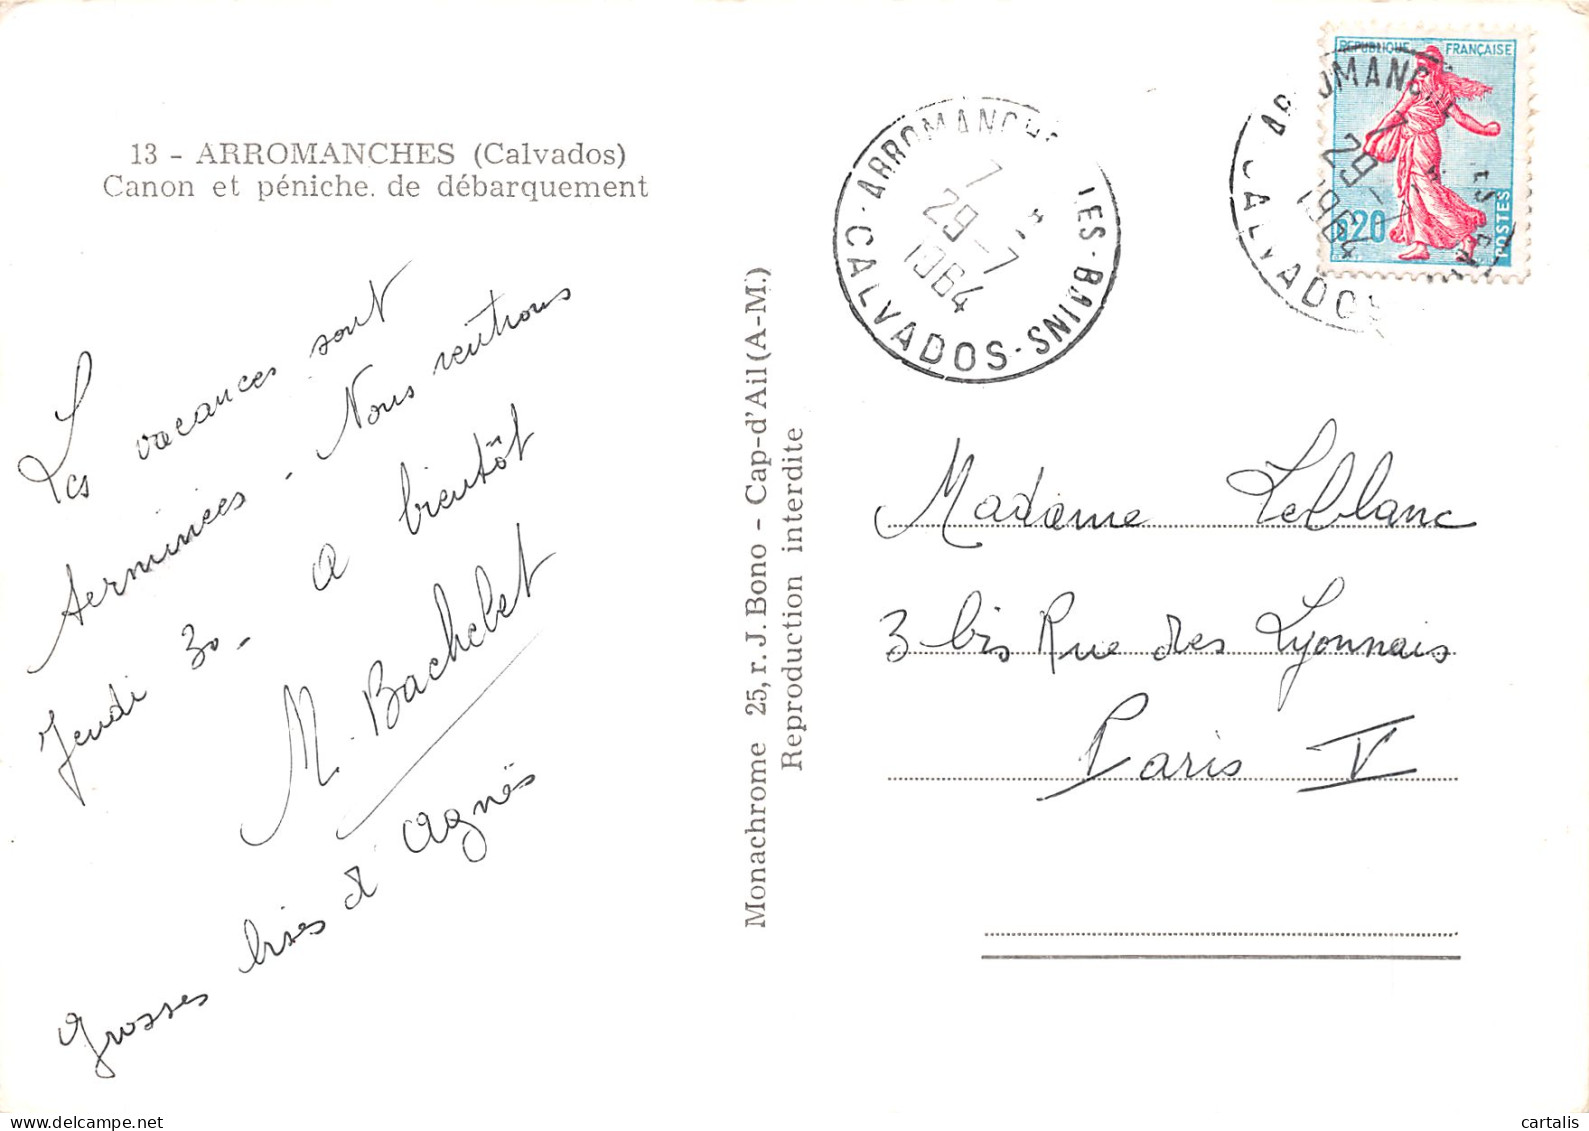 13 - ARROMANCHES (Calvados)
Canon et péniche. de débarquement
Les vacances sont
terminées - Nous rentrons
Jeudi 30 - a bientôt
M. Bachelet
Grosses bises d'Agnès
Monachrome 25, r. J. Bono - Cap-d'Ail (A-M.)
Reproduction interdite
ARROMANCHES-LES-BAINS
7
29-7
1964
CALVADOS
REPUBLIQUE FRANÇAISE
0,20
POSTES
ARROMANCHES-LES-BAINS
29-7
1964
CALVADOS
Madame Leblanc
3 bis Rue des Lyonnais
Paris V
www.delcampe.net
cartalis